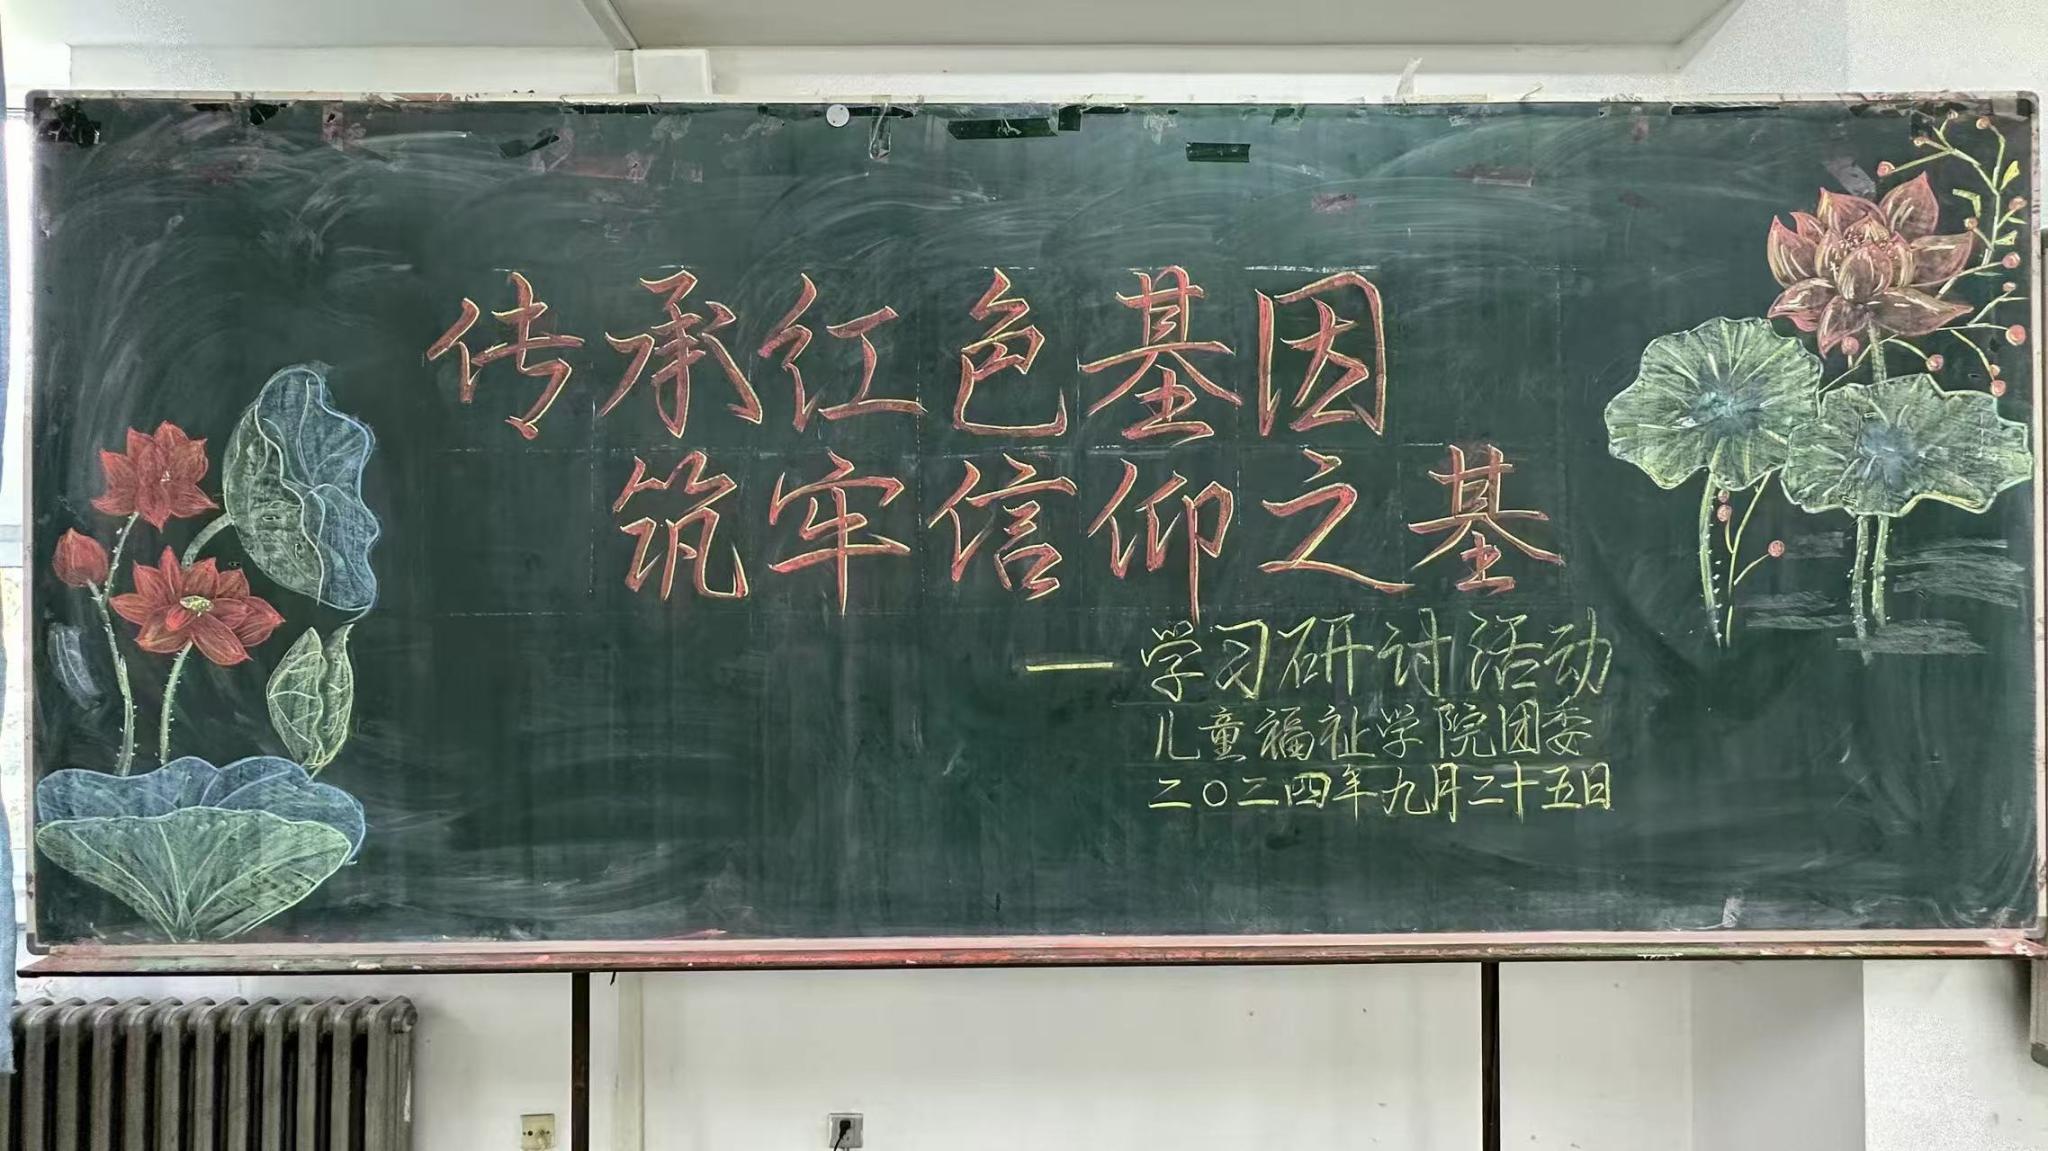 传承红色基因
筑牢信仰之基
—学习研讨活动
儿童福祉学院团委
二〇二四年九月二十五日